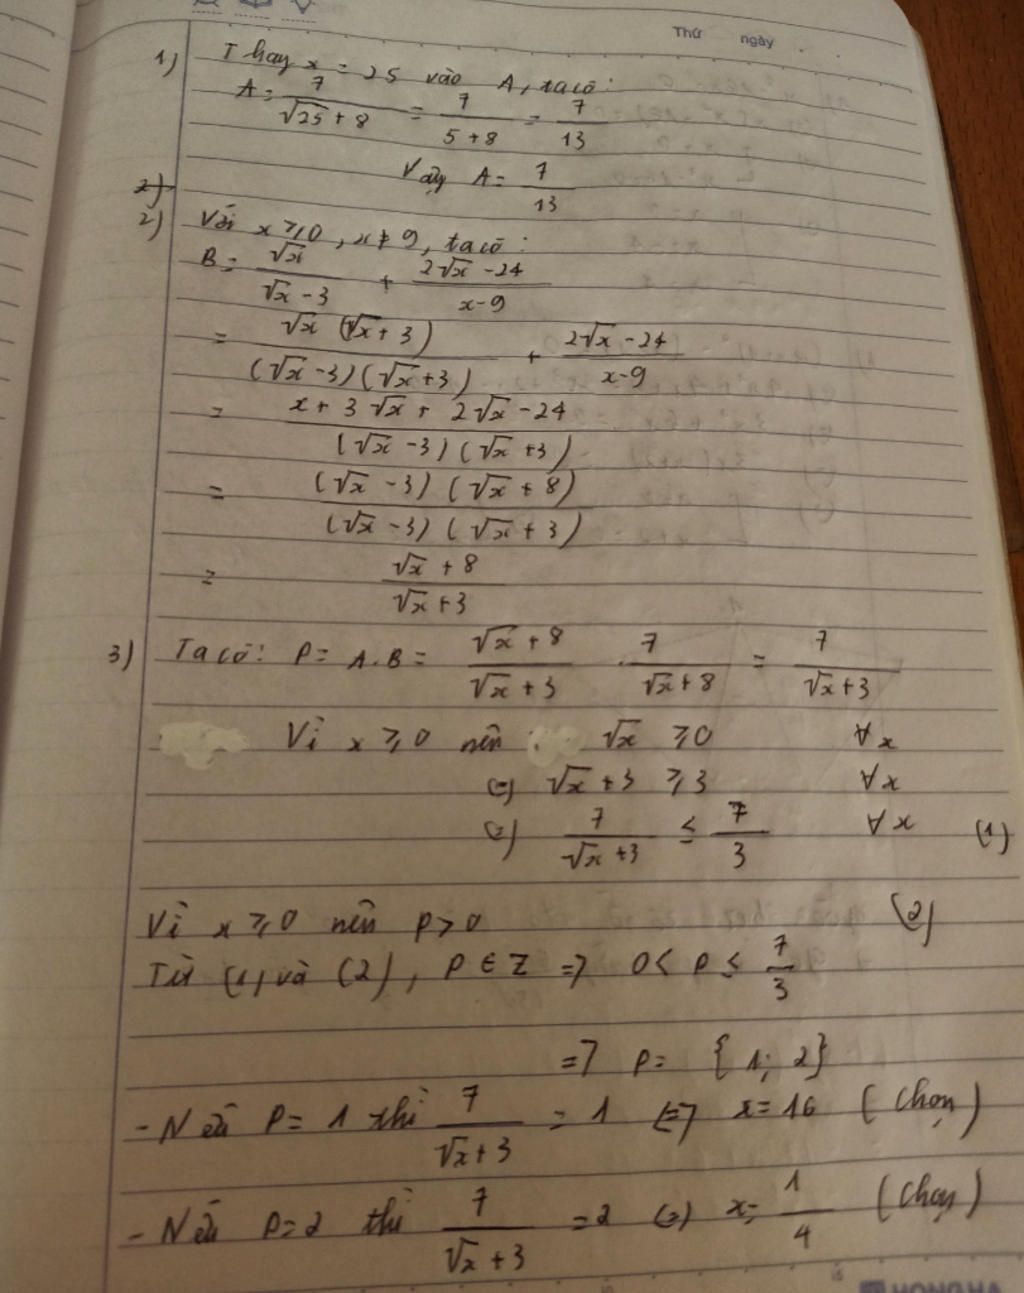 Thứ ngày
1) Thay x = 25 vào A, ta có:
A = 7/(√25 + 8) = 7/(5 + 8) = 7/13
Vậy A = 7/13
2)
2) Với x ⩾ 0, x ≠ 9, ta có:
B = √x/(√x - 3) + (2√x - 24)/(x - 9)
= √x (√x + 3)/((√x - 3)(√x + 3)) + (2√x - 24)/(x - 9)
= (x + 3√x + 2√x - 24)/((√x - 3)(√x + 3))
= (√x - 3)(√x + 8)/((√x - 3)(√x + 3))
= (√x + 8)/(√x + 3)
3) Ta có: P = A.B = (√x + 8)/(√x + 3) . 7/(√x + 8) = 7/(√x + 3)
Vì x ⩾ 0 nên √x ⩾ 0 ∀x
(=) √x + 3 ⩾ 3 ∀x
(=) 7/(√x + 3) ≤ 7/3 ∀x (1)
Vì x ⩾ 0 nên P > 0 (2)
Từ (1) và (2), P ∈ Z => 0 < P ≤ 7/3
=> P = {1; 2}
- Nếu P = 1 thì 7/(√x + 3) = 1 <=> x = 16 (chọn)
- Nếu P = 2 thì 7/(√x + 3) = 2 (=) x = 1/4 (chọn)
HONG HA